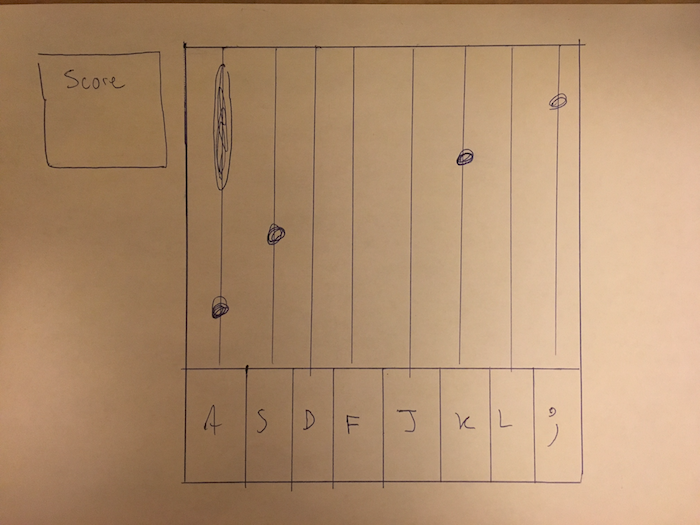 Score
A S D F J K L ;